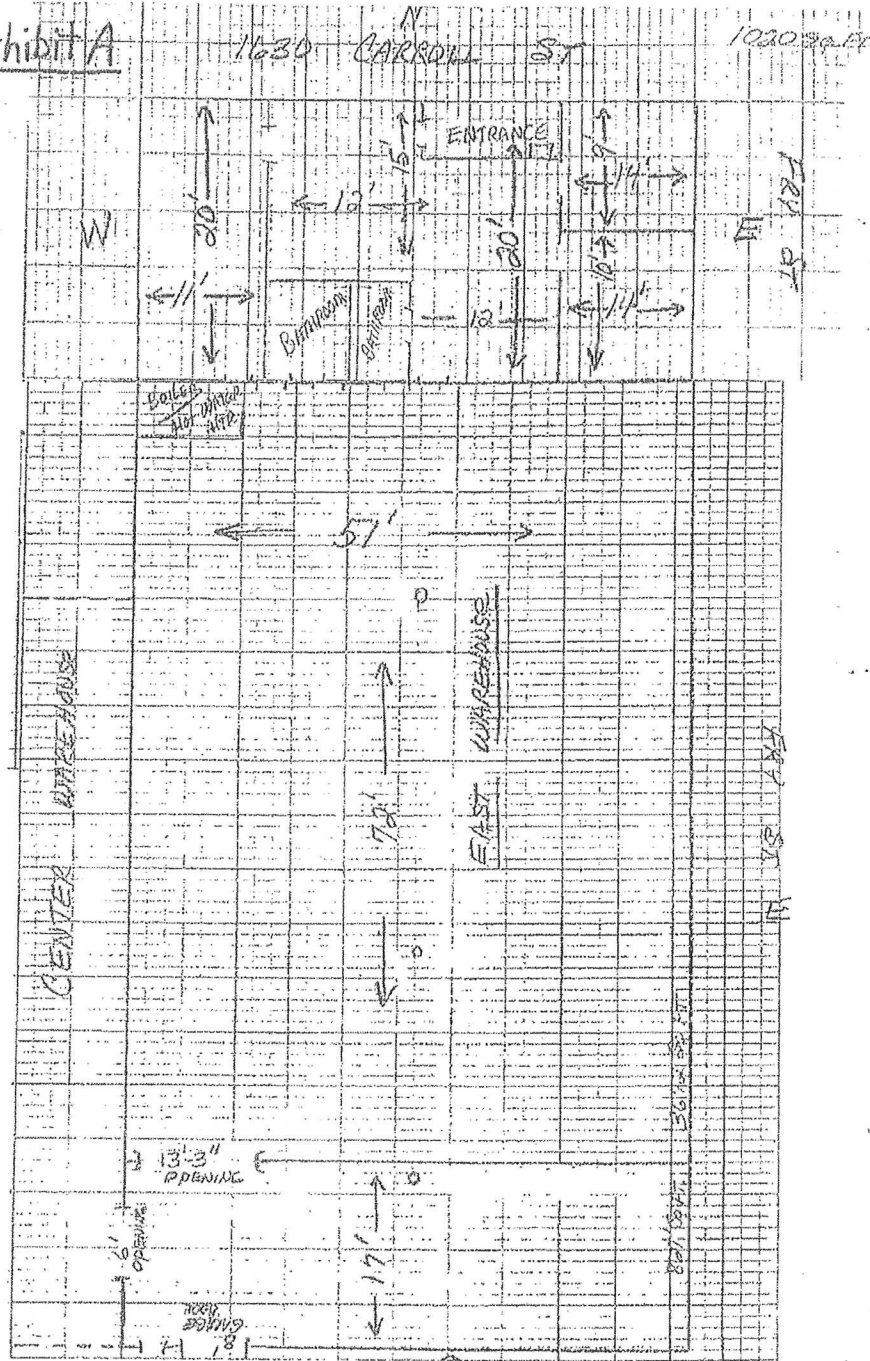 hibit A
N
1630 CARROLL ST
1020 Sq. Ft
ENTRANCE
FRY ST
W
E
20'
11'
12'
15'
20'
9'
14'
10'
14'
12
BATHROOM
BATHROOM
BOILER
HOT WATER
HTR
51'
P
CENTER WAREHOUSE
EAST WAREHOUSE
72'
o
FRY ST E
SQ FT
13'-3"
OPENING
o
6'
OPENING
17'
GARAGE
DOOR
8'